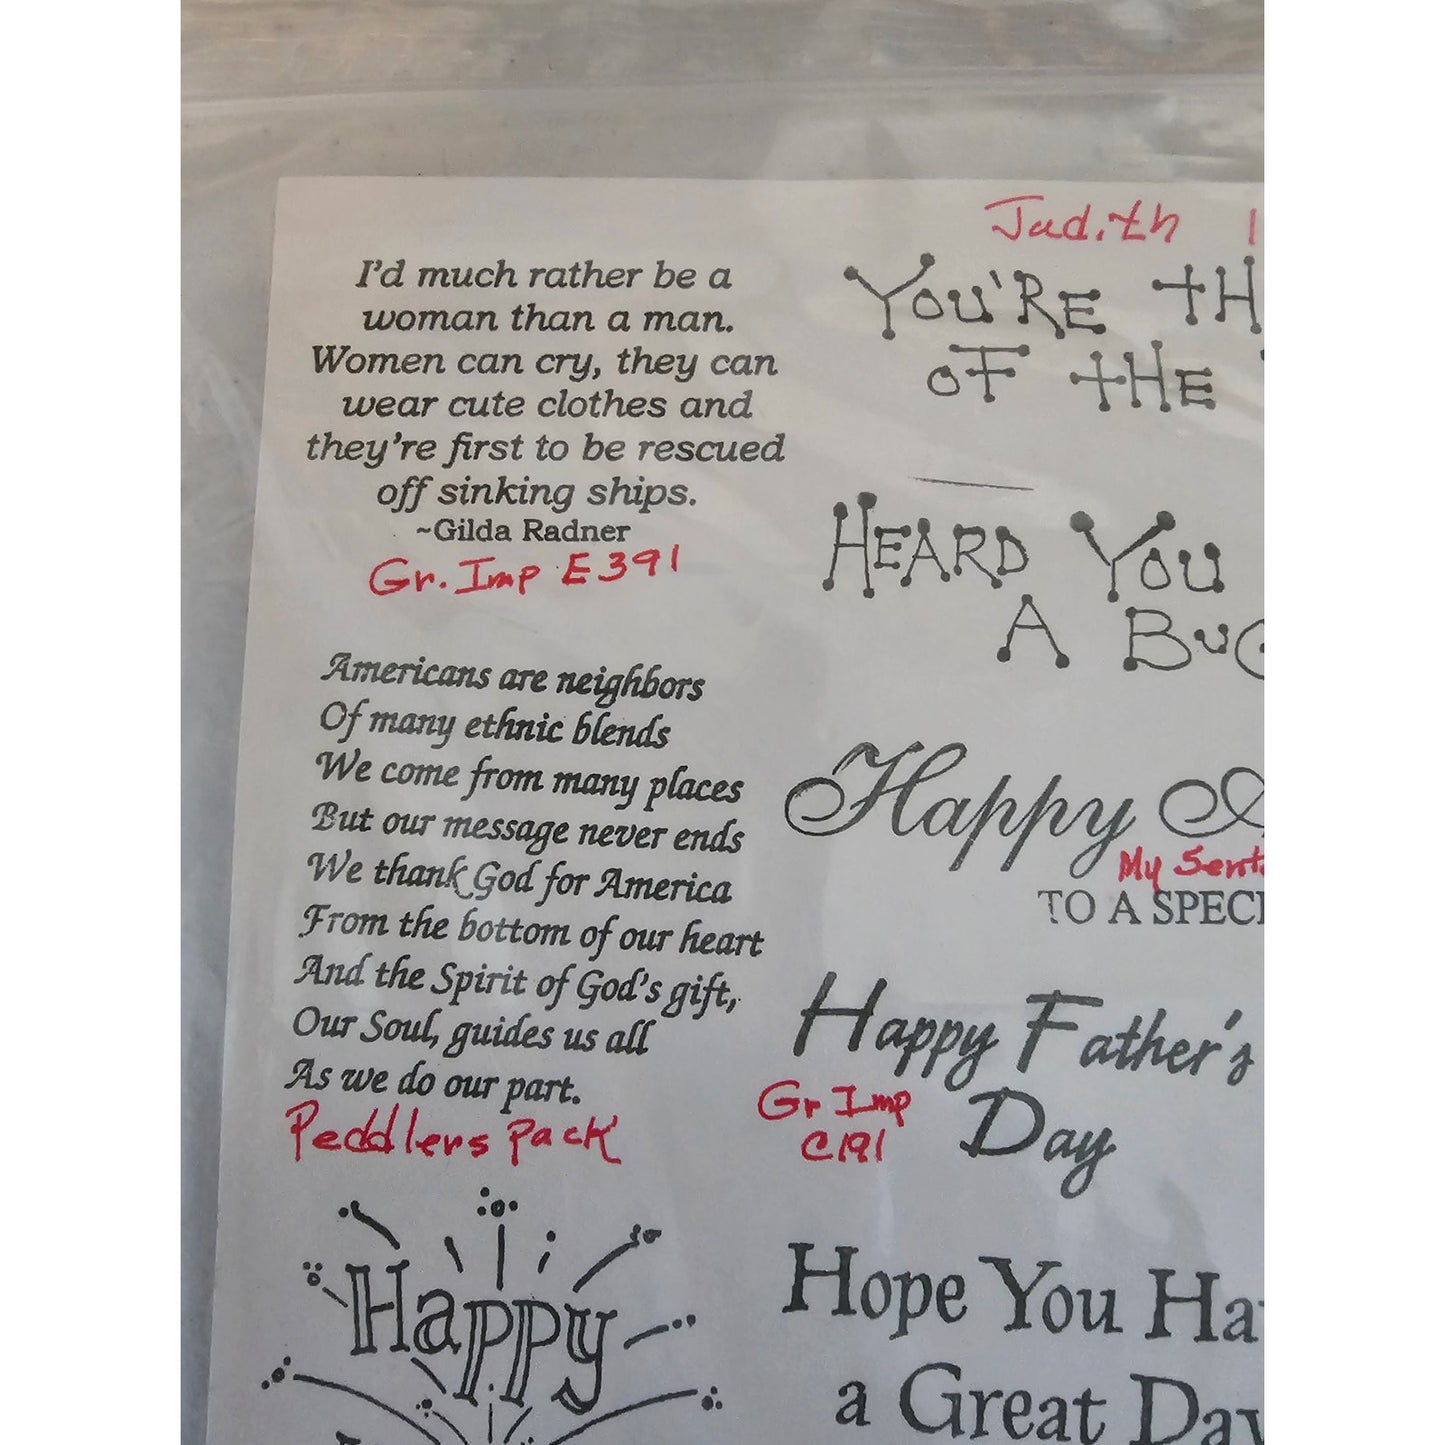 I'd much rather be a
woman than a man.
Women can cry, they can
wear cute clothes and
they're first to be rescued
off sinking ships.
~Gilda Radner
Gr. Imp E391
Americans are neighbors
Of many ethnic blends
We come from many places
But our message never ends
We thank God for America
From the bottom of our heart
And the Spirit of God's gift,
Our Soul, guides us all
As we do our part.
Peddlers Pack
Happy
Judith
YOU'RE TH
OF THE
HEARD YOU
A BUG
Happy
My Sent
TO A SPECI
Happy Father's
Day
Gr Imp
C191
Hope You Ha
a Great Day